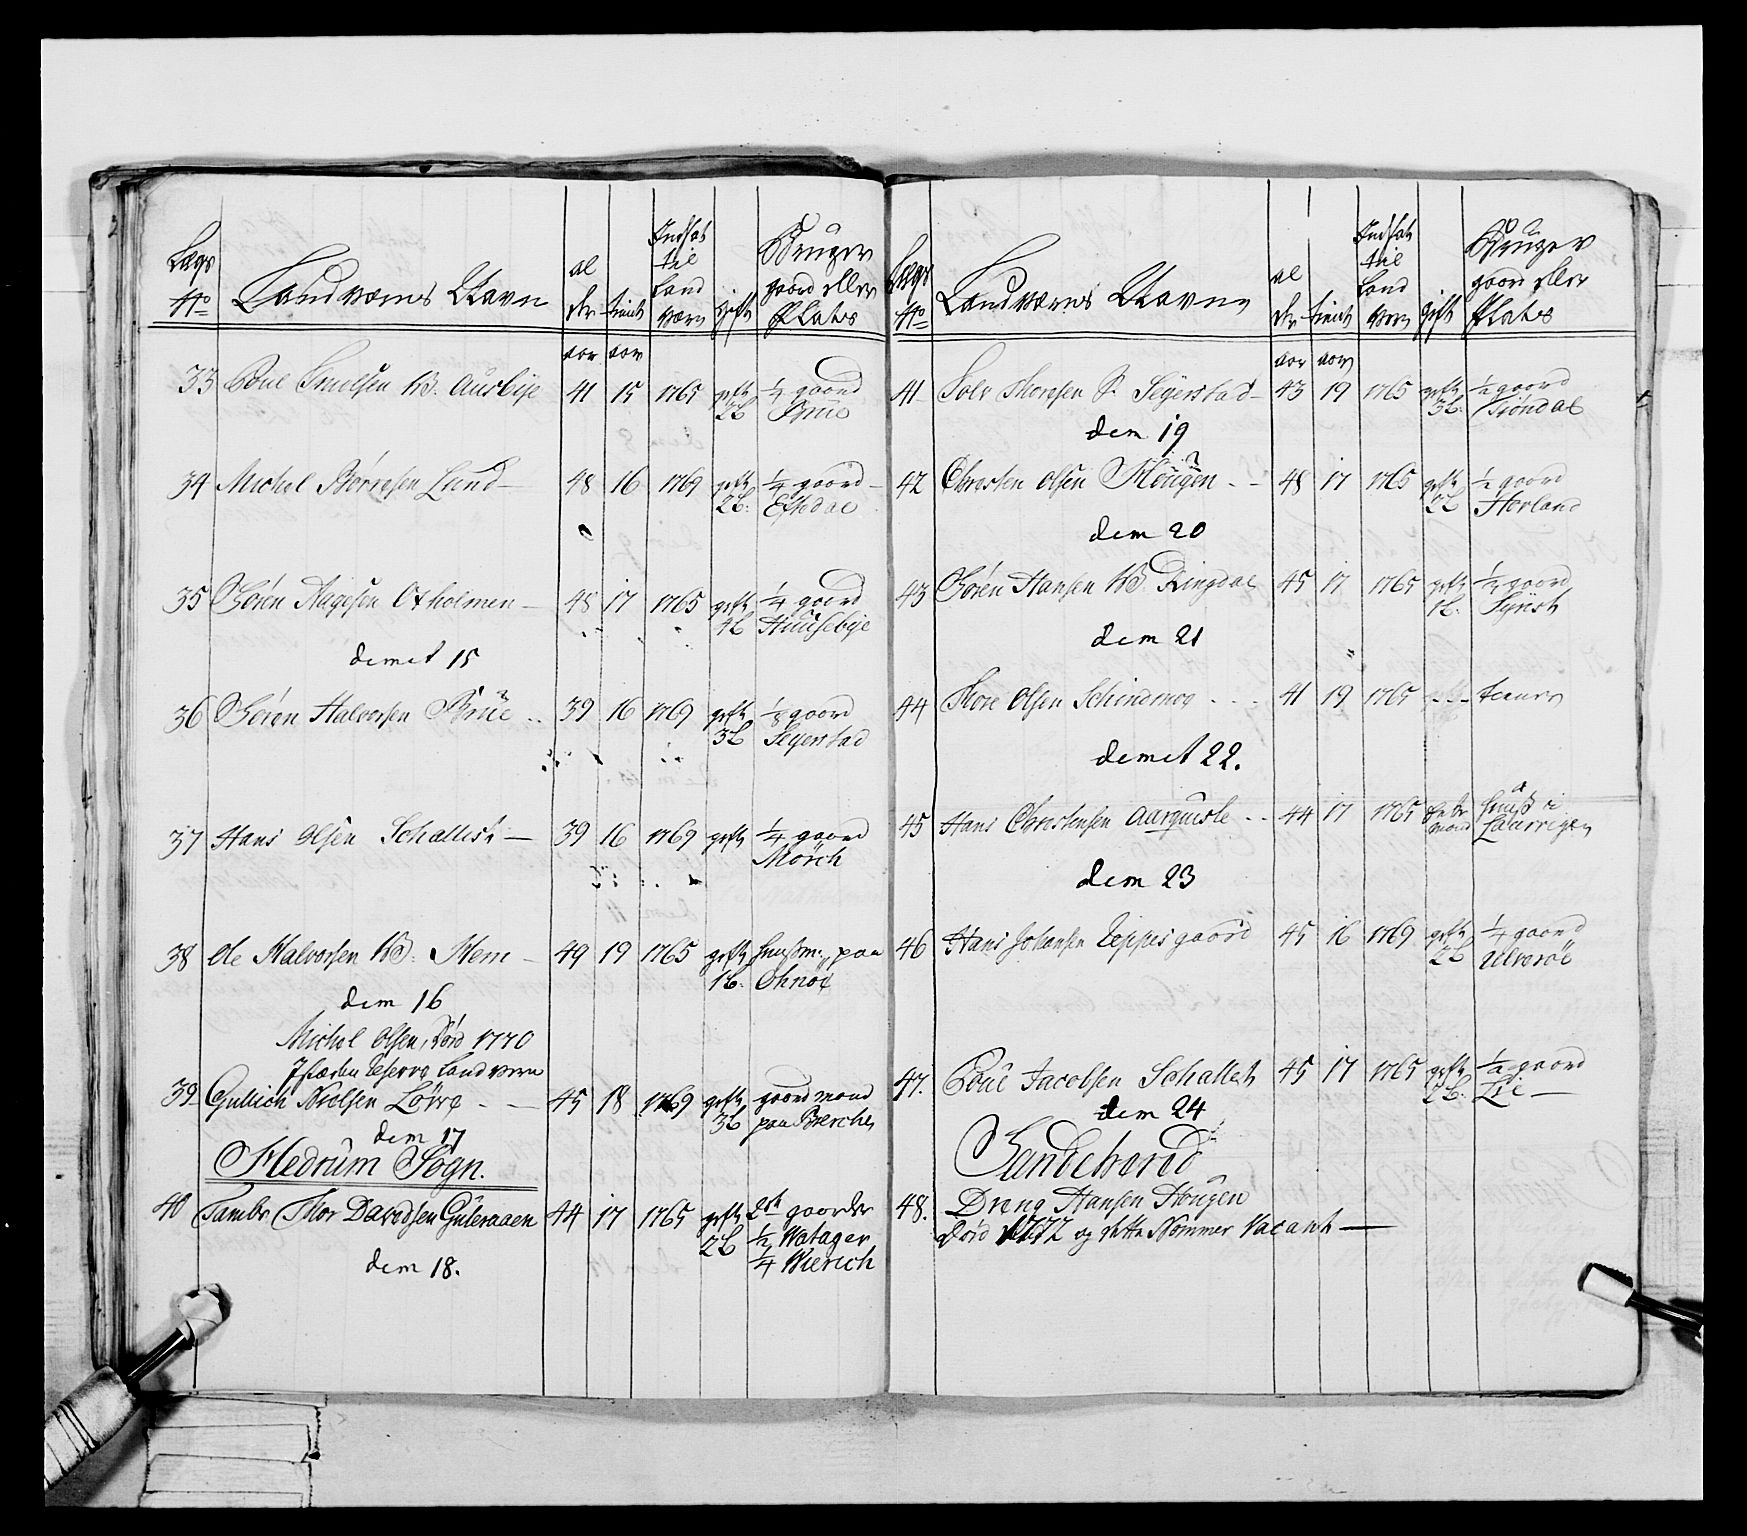 Lægs No Landværns Navn al der tient Indsat til Land værn gift Bruger gaard eller Platz
aar aar
33 Poul Truelsen W. Ausbÿe 41 15 1765 gift 2 B ¼ gaard Brue
34 Michel Børresen Lund 48 16 1769 gift 2 B: ¼ gaard Eftedal
35 Søren Aagesen Oxholmen 48 17 1765 gift 4 B ¼ gaard Huusebÿe
demet 15
36 Søren Halvorsen Brüe 39 16 1769 gift 3 B ⅛ gaard Segerstad
37 Hans Olsen Schallest 39 16 1769 gift ¼ gaard Mørch
38 Ole Halvorsen W: Hem 49 19 1765 gift 1 B. huusm: paa Ohnøe
dem 16
Michel Olsen, Død 1770
Isteden Reserve Landværn
39 Gullich Nielsen Løwe 45 18 1769 gift 3 B gaard mand paa Berche
dem 17
Hedrüm Sogn.
40 Tambr Thor Davidsen Guleraaen 44 17 1765 gift 2 B 2de gaarder ½ Watager ¼ Wierich
dem 18.
Lægs No Landværns Navn al der tient Indsat til Land værn gift Bruger gaard eller Platz
aar aar
41 Solv Thoresen S. Segerstad 43 19 1765 gift 3 B: ½ gaard Giøndal
dem 19
42 Christen Olsen Hougen 48 17 1765 gift 2 B ½ gaard Horland
dem 20
43 Søren Hansen W. Ringdal 45 17 1765 gift 1 B. ½ gaard Syrist
dem 21
44 Thore Olsen Schindmog 41 19 1765 tiener
demet 22.
45 Hans Christensen Aarquisle 44 17 1765 Enke mand huus i Laurvigen
dem 23
46 Hans Johansen Zeppesgaard 45 16 1769 gift 2 B ¼ gaard Ulverøe
47. Poul Jacobsen Schallest 45 17 1765 gift 2 B. ½ gaard Lie
dem 24
Sandeherred
48. Dreng Hansen Hougen
Død 1772 og dette Nommer Vacant